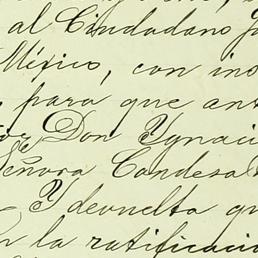 al Ciudadano
México, con
para que ant
Don Ygnaci
Señora Candesa
Y devuelta qu
n la ratificació